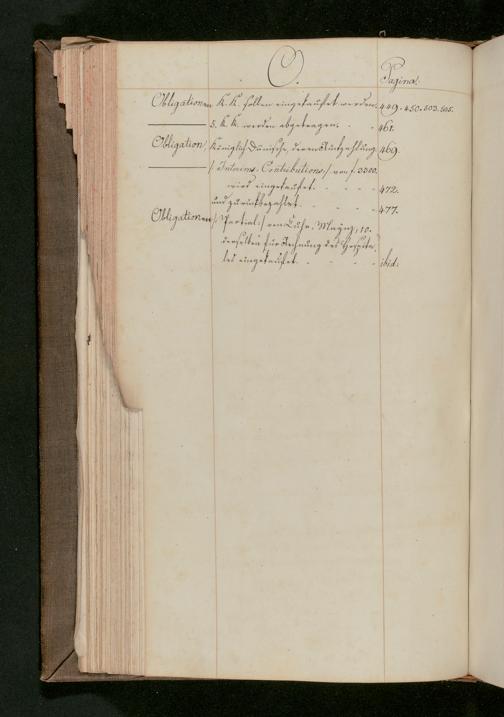 O.
Pagina.
Obligationen K. K. sollen eingekauft werden. 449. 450. 503. 505.
s. K. K. werden abgetragen. - 461.
Obligation, Königlich Dänische, deren Aufzahlung 469.
/: Interims-Contributions :/ von f. 3300.
wird eingekauft. - - - - 472.
und zurückbezahlt. - - - - 477.
Obligationen /: Partial :/ von Churmaynz, 10.
derselben für Rechnung des Hospita-
les eingekauft. - - - - ibid.